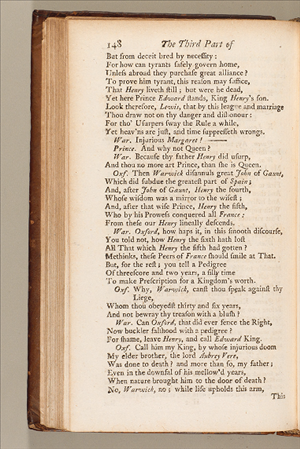 148 The Third Part of
But from deceit bred by necessity:
For how can tyrants safely govern home,
Unless abroad they purchase great alliance?
To prove him tyrant, this reason may suffice,
That Henry liveth still; but were he dead,
Yet here Prince Edward stands, King Henry's son.
Look therefore, Lewis, that by this league and marriage
Thou draw not on thy danger and dishonour:
For tho' Usurpers sway the Rule a while,
Yet heav'ns are just, and time suppresseth wrongs.
War. Injurious Margaret!
Prince. And why not Queen?
War. Because thy father Henry did usurp,
And thou no more art Prince, than she is Queen.
Oxf. Then Warwick disannuls great John of Gaunt,
Which did subdue the greatest part of Spain;
And, after John of Gaunt, Henry the fourth,
Whose wisdom was a mirror to the wisest;
And, after that wise Prince, Henry the fifth,
Who by his Prowess conquered all France:
From these our Henry lineally descends.
War. Oxford, how haps it, in this smooth discourse,
You told not, how Henry the sixth hath lost
All That which Henry the fifth had gotten?
Methinks, these Peers of France should smile at That.
But, for the rest; you tell a Pedigree
Of threescore and two years, a silly time
To make Prescription for a Kingdom's worth.
Oxf. Why, Warwick, canst thou speak against thy
Liege,
Whom thou obeyedst thirty and six years,
And not bewray thy treason with a blush?
War. Can Oxford, that did ever fence the Right,
Now buckler falshood with a pedigree?
For shame, leave Henry, and call Edward King.
Oxf. Call him my King, by whose injurious doom
My elder brother, the lord Aubrey Vere,
Was done to death? and more than so, my father;
Even in the downfal of his mellow'd years,
When nature brought him to the door of death?
No, Warwick, no; while life upholds this arm,
This